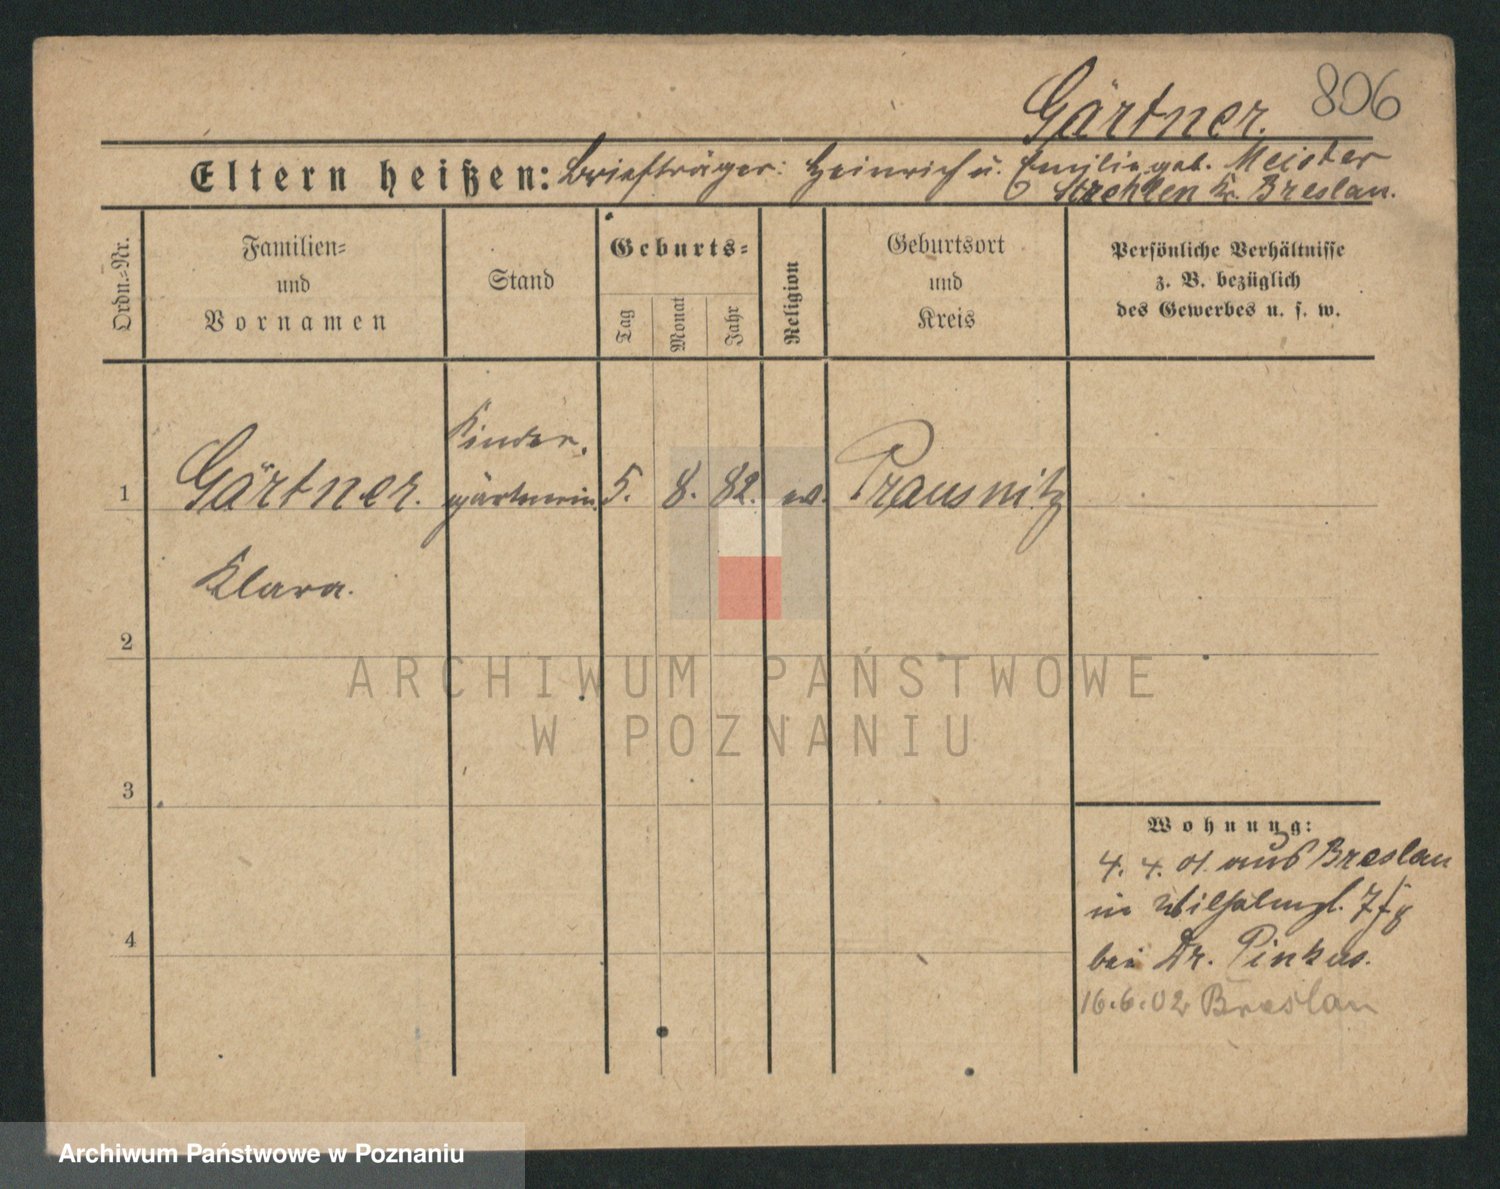 Gärtner. 806
Eltern heißen: Briefträger: Heinrich u. Emilie geb. Meister
Strehlen Kr. Breslau.
Ordn.-Nr.
Familien-
und
Vornamen
Stand
Geburts-
Tag
Monat
Jahr
Religion
Geburtsort
und
Kreis
Persönliche Verhältnisse
z. B. bezüglich
des Gewerbes u. s. w.
Kinder-
1 Gärtner. gärtnerin. 5. 8. 82. ev. Prausnitz
Klara.
2
ARCHIWUM PAŃSTWOWE
W POZNANIU
3
Wohnung:
4. 4. 01. aus Breslau
in Wilhelmpl.
4
bei Dr. Pinkus.
16.6.02 Breslau
Archiwum Państwowe w Poznaniu